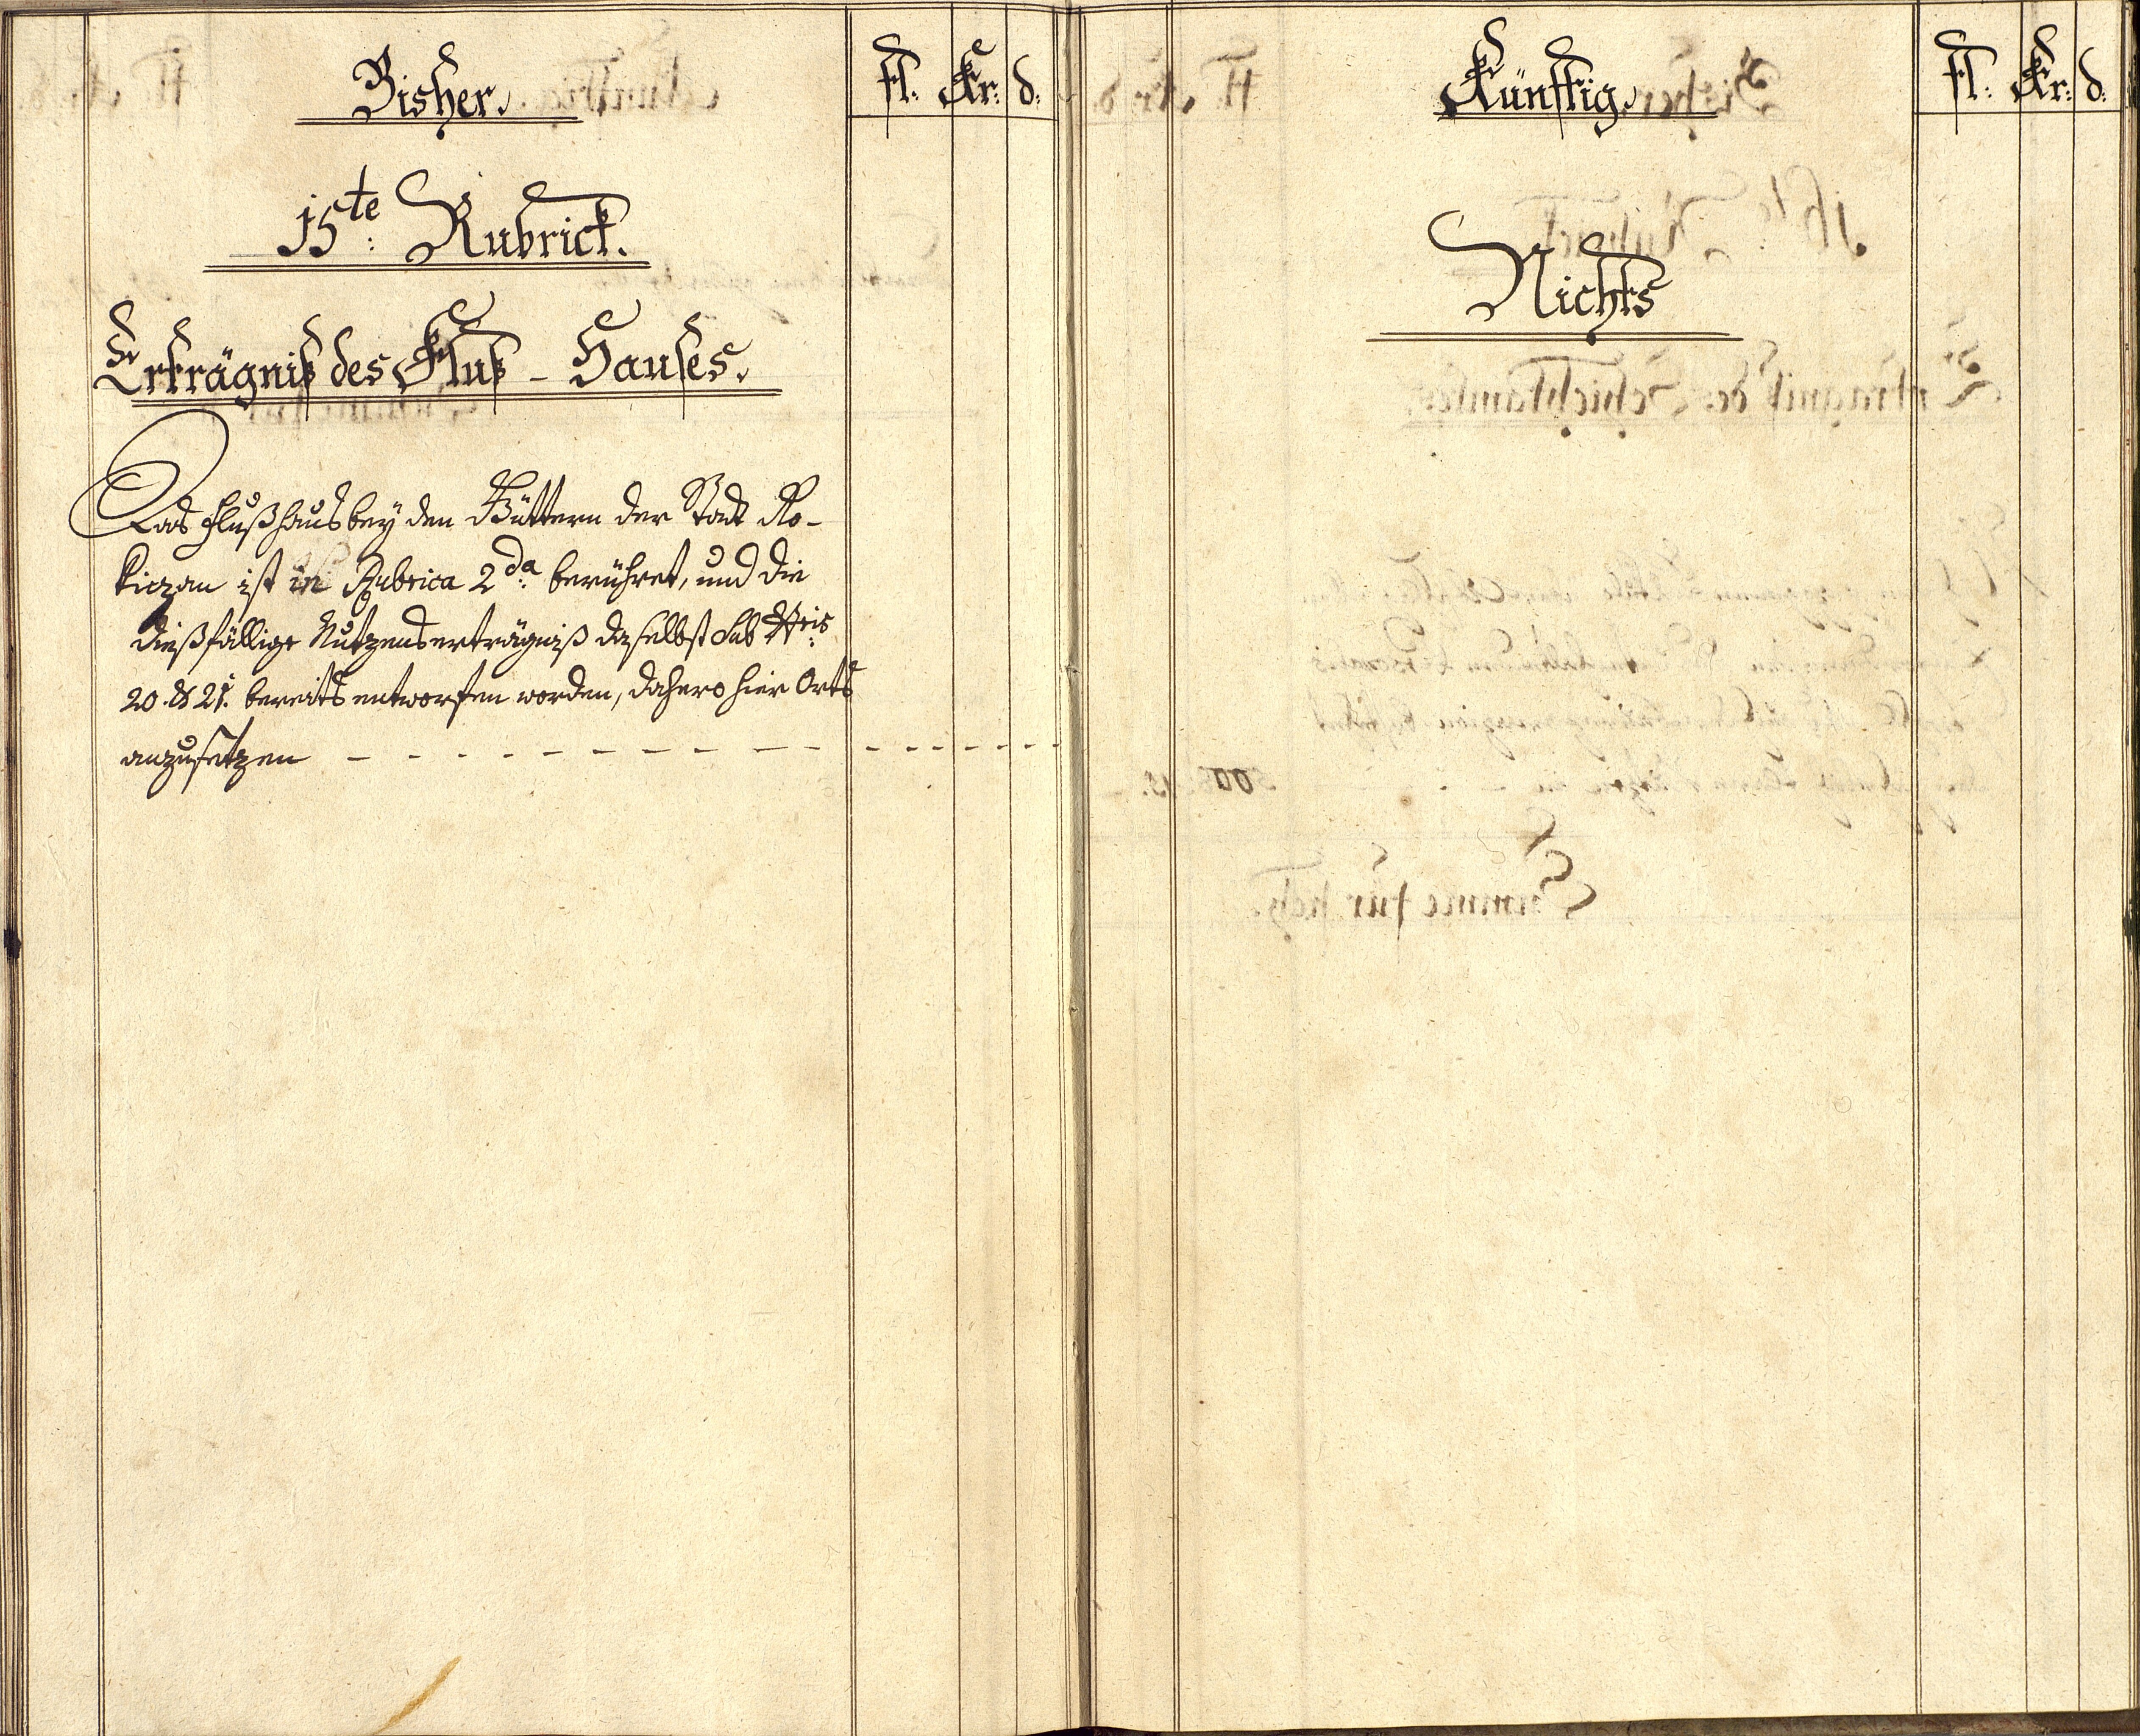 Bisher.
fl. Kr: d:
15te: Rubrick.
Erträgniß des Fluß - Hauses.
Das Flußhaus bey den Güttern der Stadt Ro-
kiczan ist in Rubrica 2da: berühret, und die
dießfällige Nutzenserträgniß daselbst sub Nris:
20. & 21. bereits entworfen worden, dahero hier Orts
anzusetzen - - - - - - - - -
Künfftig.
fl: Kr: d:
Nichts